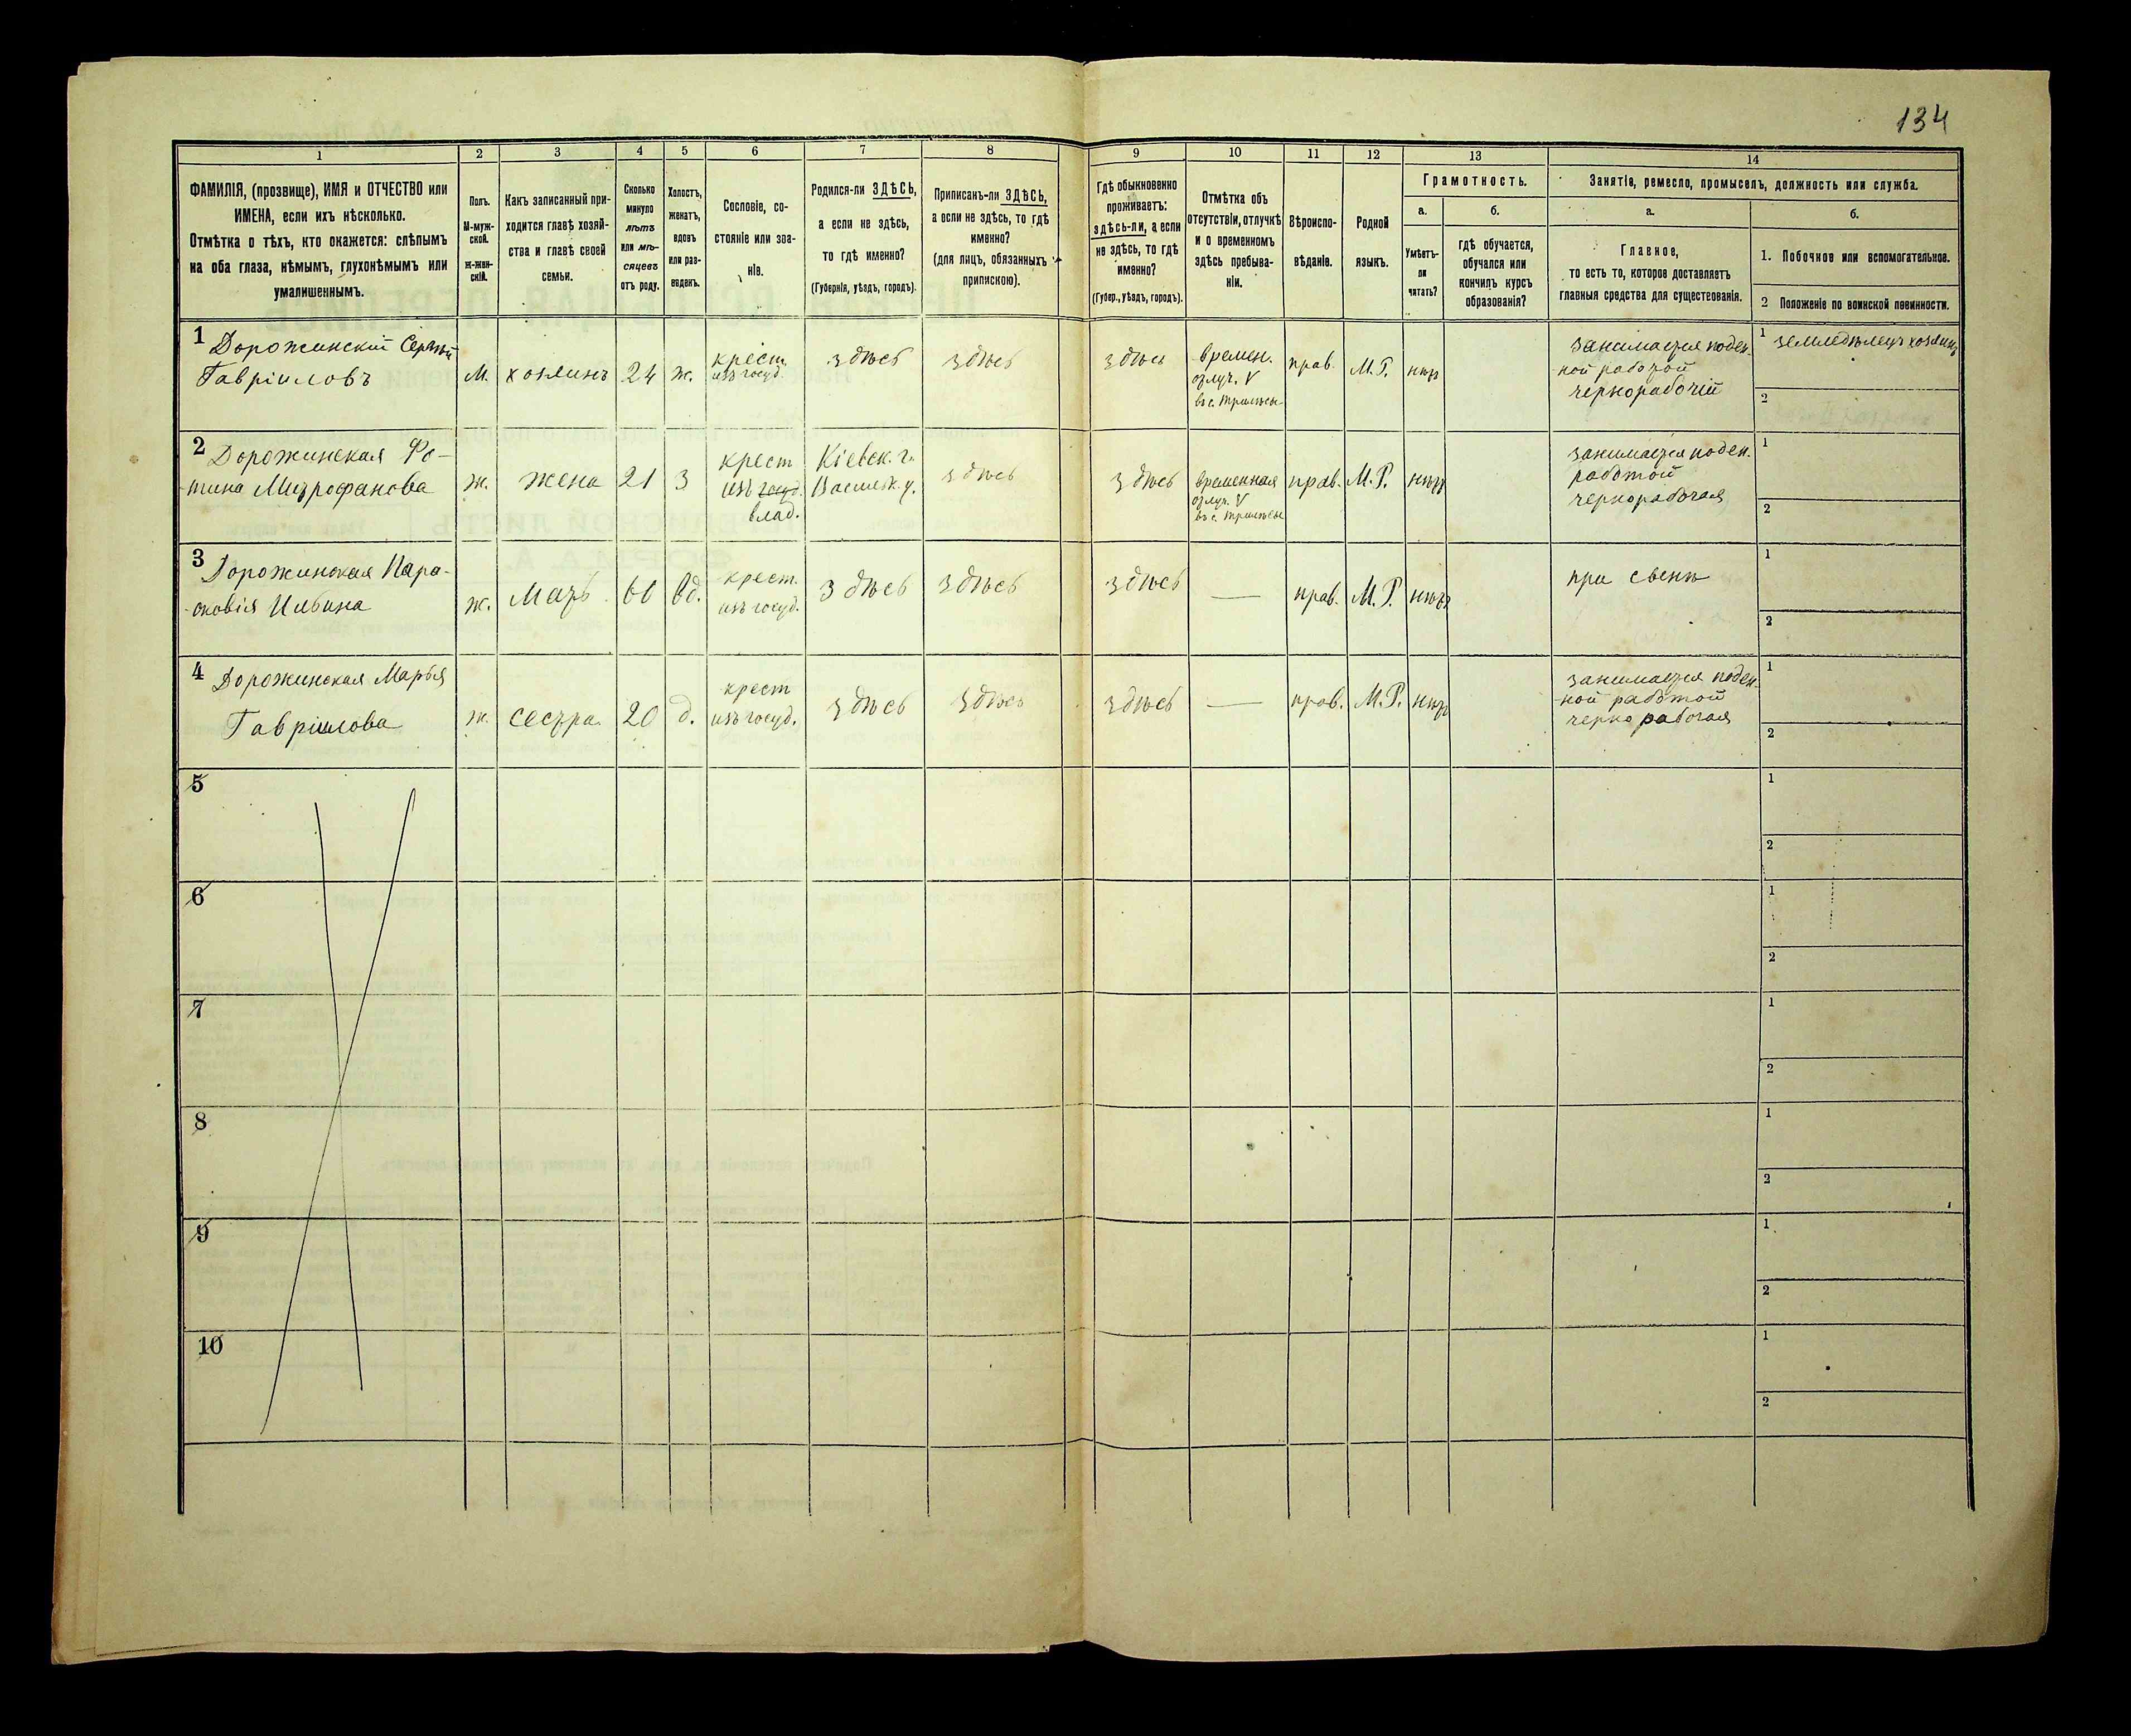 134
1
2
3
4
5
6
7
8
9
10
11
12
13
14
ФАМИЛІЯ, (прозвище), ИМЯ и ОТЧЕСТВО или
ИМЕНА, если ихъ нѣсколько.
Отмѣтка о тѣхъ, кто окажется: слѣпымъ
на оба глаза, нѣмымъ, глухонѣмымъ или
умалишеннымъ.
Полъ.
М-муж-
ской.
Ж-жен-
скій.
Какъ записанный при-
ходится главѣ хозяй-
ства и главѣ своей
семьи.
Сколько
минуло
лѣтъ
или мѣ-
сяцевъ
отъ роду.
Холостъ,
женатъ,
вдовъ
или раз-
веденъ.
Сословіе, со-
стояніе или зва-
ніе.
Родился-ли ЗДѢСЬ,
а если не здѣсь,
то гдѣ именно?
(Губернія, уѣздъ, городъ).
Приписанъ-ли ЗДѢСЬ,
а если не здѣсь, то гдѣ
именно?
(для лицъ, обязанныхъ
припискою).
Гдѣ обыкновенно
проживаетъ:
здѣсь-ли, а если
не здѣсь, то гдѣ
именно?
(Губер., уѣздъ, городъ).
Отмѣтка объ
отсутствіи, отлучкѣ
и о временномъ
здѣсь пребыва-
ніи.
Вѣроиспо-
вѣданіе.
Родной
языкъ.
Грамотность.
а.
Умѣетъ-
ли
читать?
б.
гдѣ обучается,
обучался или
кончилъ курсъ
образованія?
Занятіе, ремесло, промыселъ, должность или служба.
а.
Главное,
то есть то, которое доставляетъ
главныя средства для существованія.
б.
1. Побочное или вспомогательное.
2 Положеніе по воинской повинности.
1
Дорожинскій Сергѣй
Гавріиловъ
М.
хозяинъ
24
ж.
крест.
изъ госуд.
здѣсь
здѣсь
здѣсь
времен.
отлуч. V
въ с. Трилѣсы
прав.
М.Р.
нѣт
занимается поден-
ной работой
чернорабочій
1 земледѣлецъ хозяинъ
2
2
Дорожинская Фо-
тина Митрофанова
ж.
жена
21
З
крест
изъ госуд.
влад.
Кіевск. г.
Васильк. у.
здѣсь
здѣсь
временная
отлуч. V
въ с. Трилѣсы
прав.
М.Р.
нѣт
занимается поден.
работой
чернорабочая
1
2
3
Дорожинская Пара-
сковія Ильина
ж.
Мать
60
вд.
крест.
изъ госуд.
здѣсь
здѣсь
здѣсь
—
прав.
М.Р.
нѣтъ
при сынѣ
1
2
4
Дорожинская Марья
Гавріилова
ж.
сестра
20
д.
крест
изъ госуд.
здѣсь
здѣсь
здѣсь
—
прав.
М.Р.
нѣт
занимается поден-
ной работой
чернорабочая
1
2
5
1
2
6
1
2
7
1
2
8
1
2
9
1
2
10
1
2